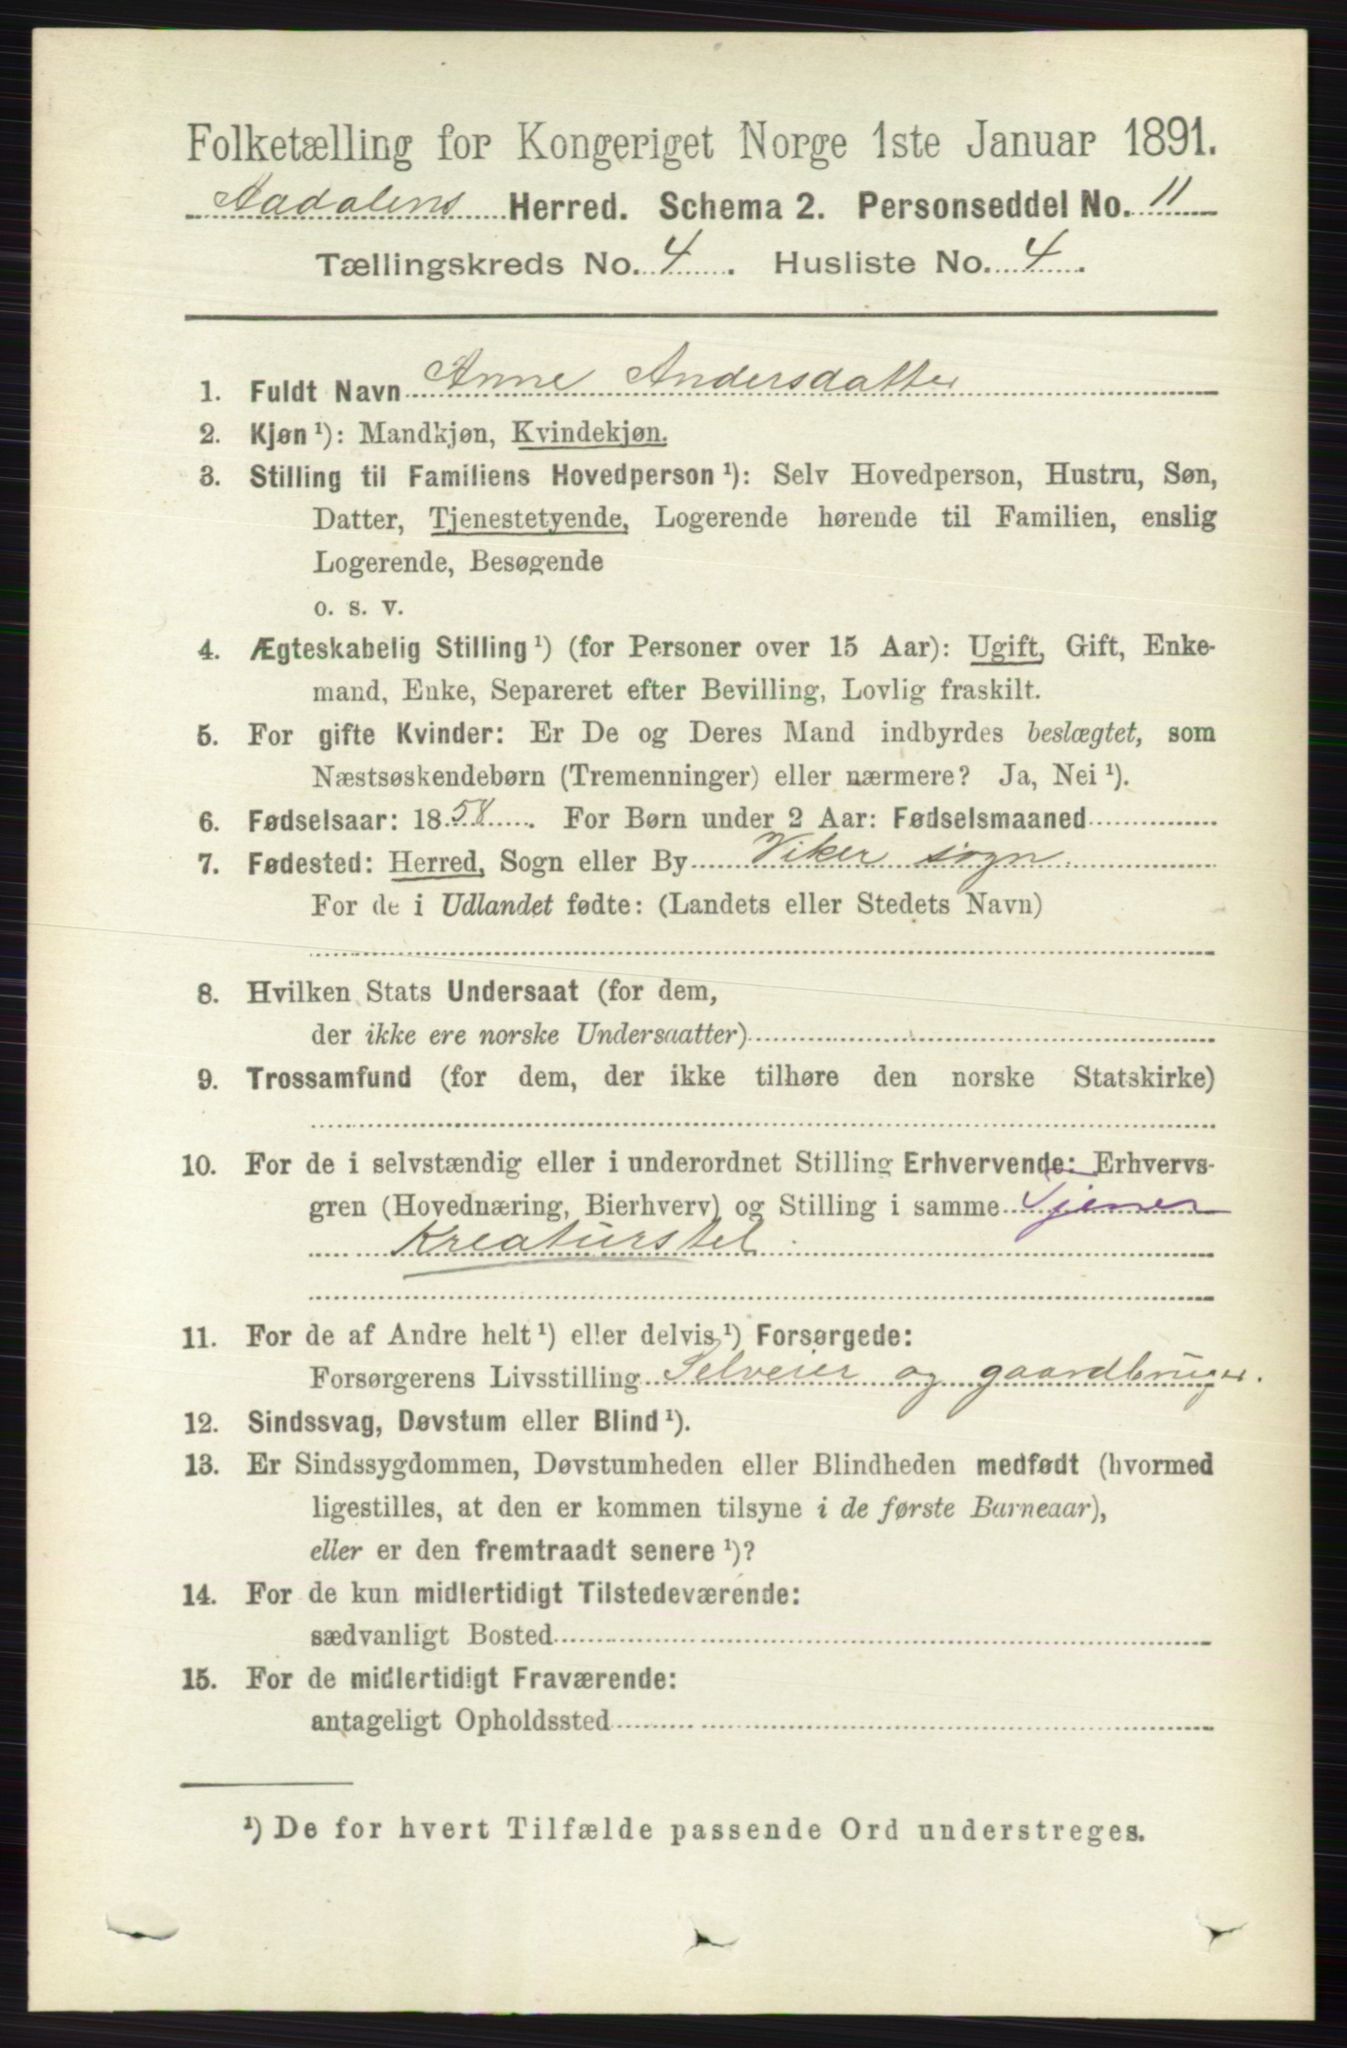 Folketælling for Kongeriget Norge 1ste Januar 1891.
Aadalens Herred. Schema 2. Personseddel No. 11
Tællingskreds No. 4. Husliste No. 4.
1. Fuldt Navn Anne Andersdatter
2. Kjøn¹): Mandkjøn, Kvindekjøn.
3. Stilling til Familiens Hovedperson¹): Selv Hovedperson, Hustru, Søn,
Datter, Tjenestetyende, Logerende hørende til Familien, enslig
Logerende, Besøgende
o. s. v.
4. Ægteskabelig Stilling¹) (for Personer over 15 Aar): Ugift, Gift, Enke-
mand, Enke, Separeret efter Bevilling, Lovlig fraskilt.
5. For gifte Kvinder: Er De og Deres Mand indbyrdes beslægtet, som
Næstsøskendebørn (Tremenninger) eller nærmere? Ja, Nei¹).
6. Fødselsaar: 1858. For Børn under 2 Aar: Fødselsmaaned
7. Fødested: Herred, Sogn eller By Viker sogn
For de i Udlandet fødte: (Landets eller Stedets Navn)
8. Hvilken Stats Undersaat (for dem,
der ikke ere norske Undersaatter)
9. Trossamfund (for dem, der ikke tilhøre den norske Statskirke)
10. For de i selvstændig eller i underordnet Stilling Erhvervende: Erhvervs-
gren (Hovednæring, Bierhverv) og Stilling i samme Tjener
Kreaturstel
11. For de af Andre helt¹) eller delvis¹) Forsørgede:
Forsørgerens Livsstilling Selveier og gaardbruger.
12. Sindssvag, Døvstum eller Blind¹).
13. Er Sindssygdommen, Døvstumheden eller Blindheden medfødt (hvormed
ligestilles, at den er kommen tilsyne i de første Barneaar),
eller er den fremtraadt senere¹)?
14. For de kun midlertidigt Tilstedeværende:
sædvanligt Bosted
15. For de midlertidigt Fraværende:
antageligt Opholdssted
¹) De for hvert Tilfælde passende Ord understreges.